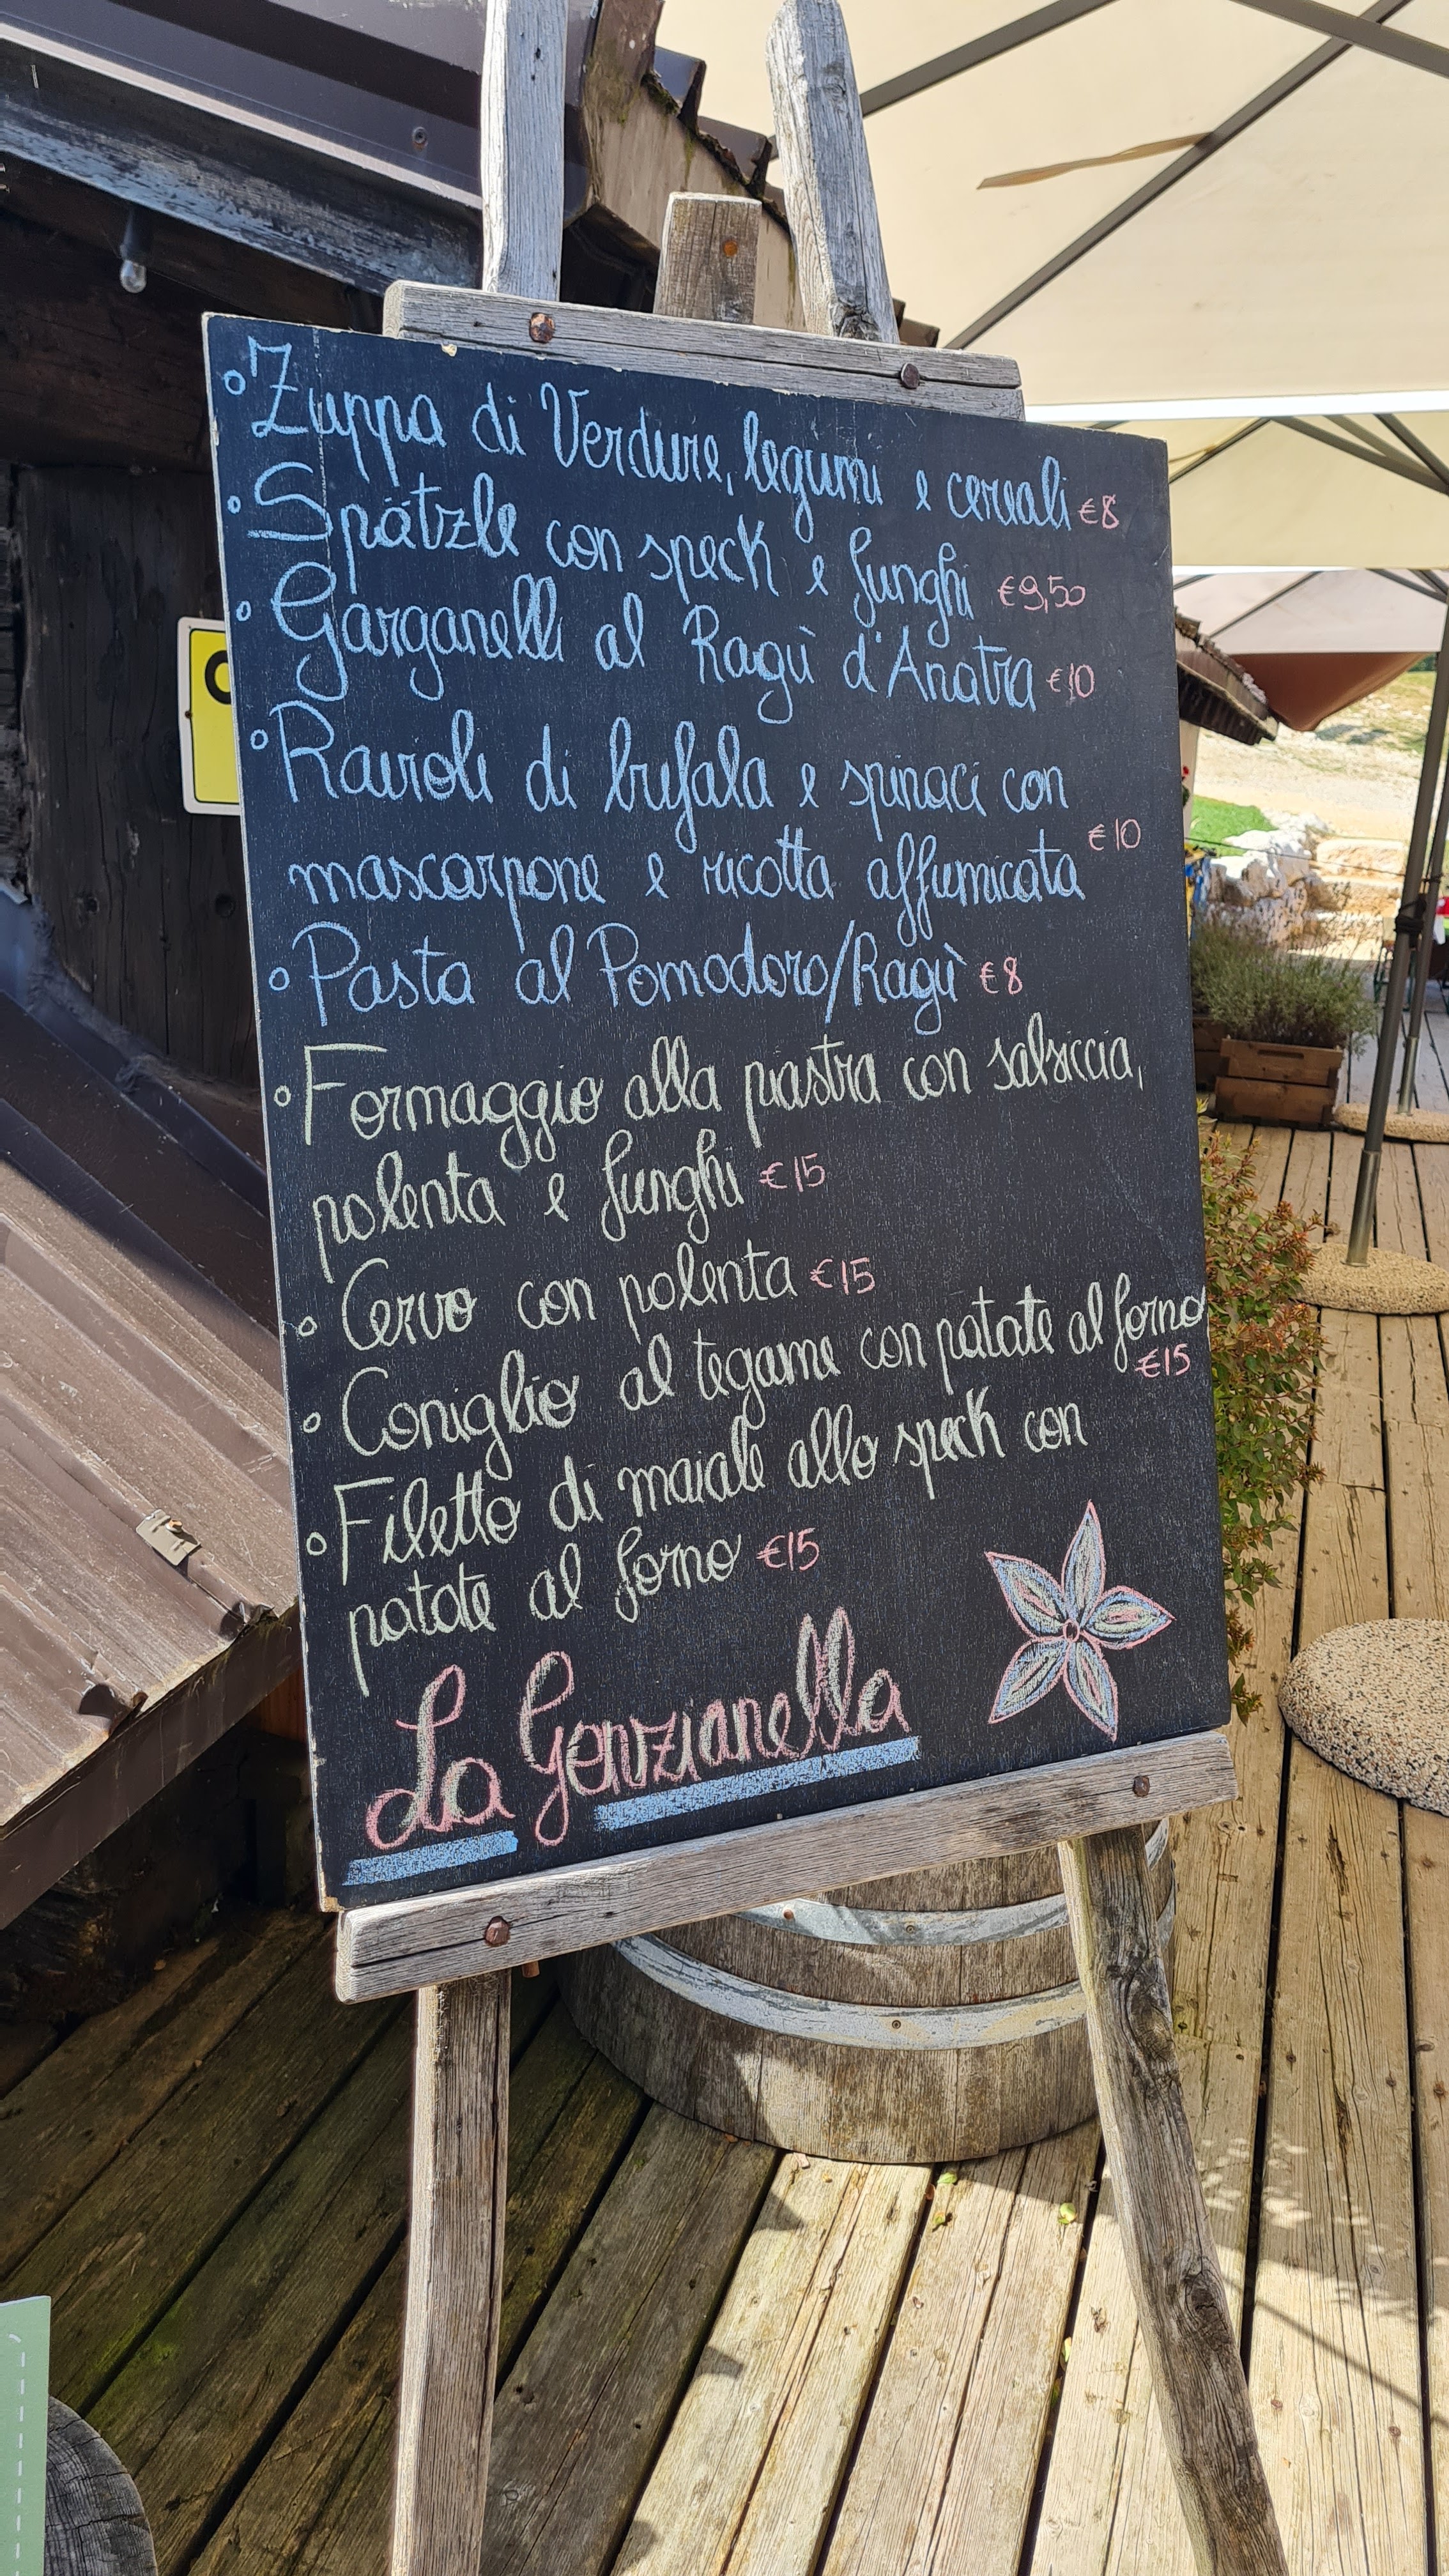 Zuppa di Verdure, legumi e cereali €8
Spätzle con speck e funghi €9,50
Garganelli al Ragù d'Anatra €10
Ravioli di bufala e spinaci con
mascarpone e ricotta affumicata €10
Pasta al Pomodoro/Ragù €8
Formaggio alla piastra con salsiccia,
polenta e funghi €15
Cervo con polenta €15
Coniglio al tegame con patate al forno
€15
Filetto di maiale allo speck con
patate al forno €15
La Genzianella